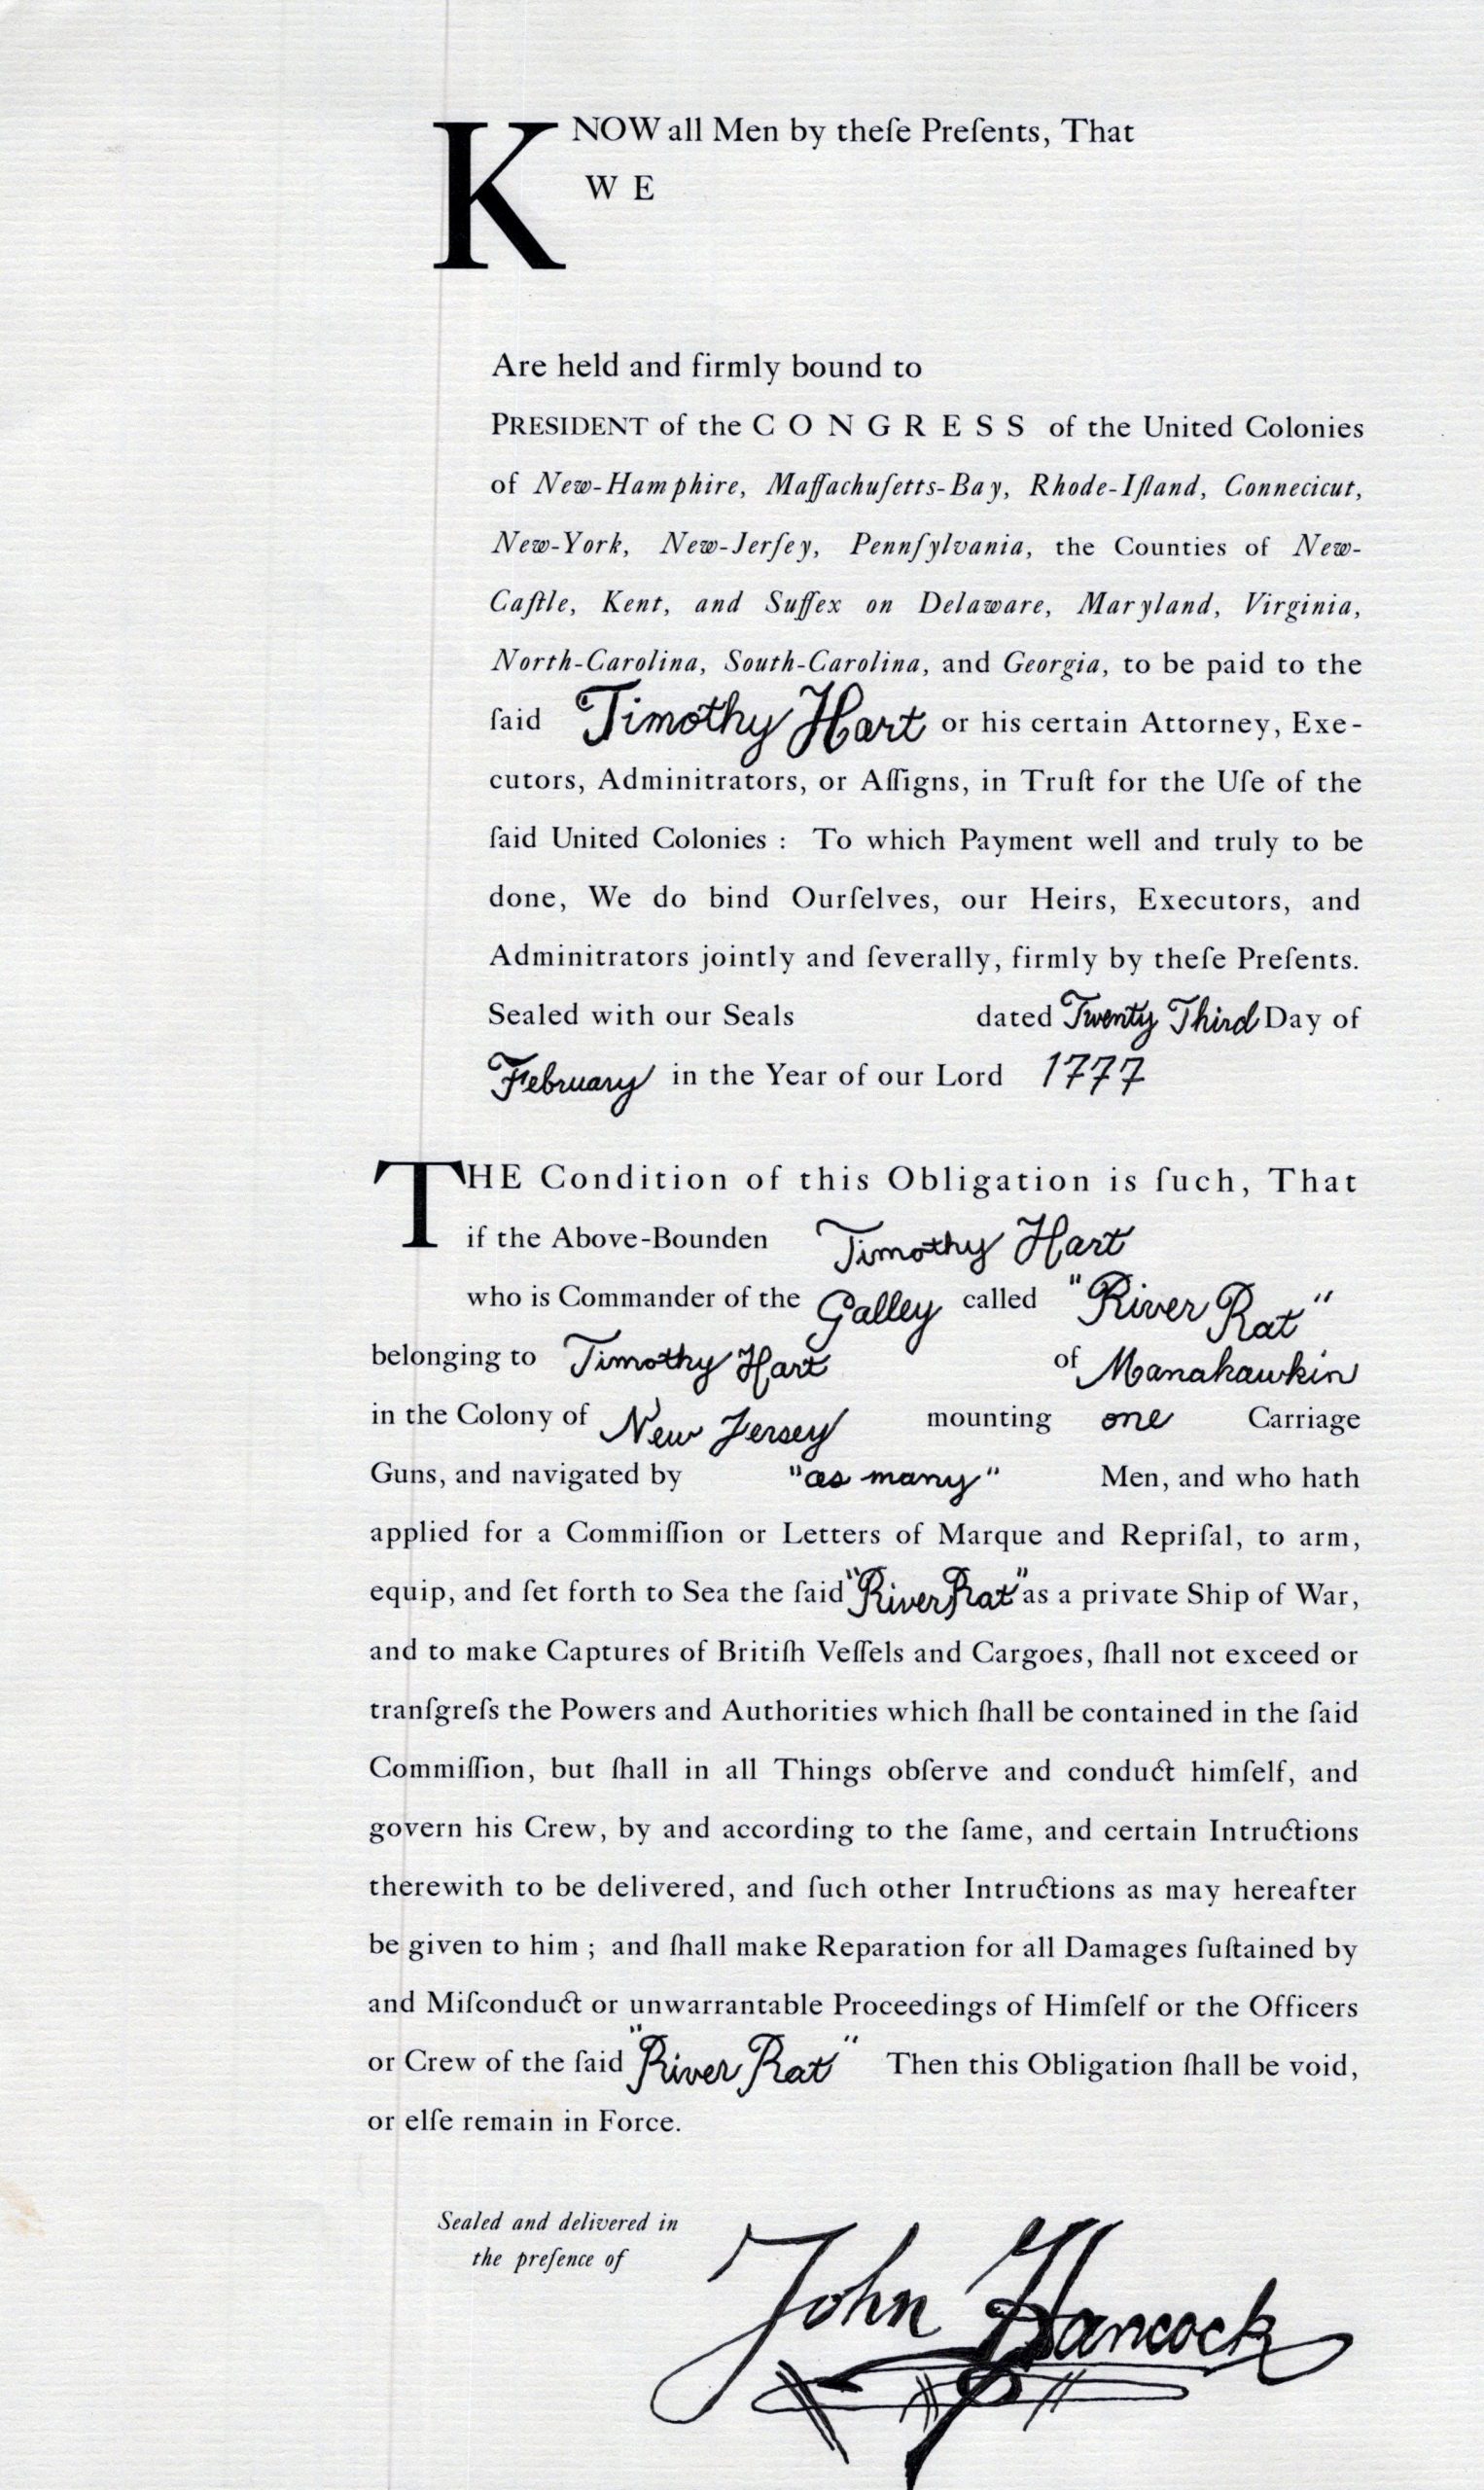 KNOW all Men by theſe Preſents, That
W E
Are held and firmly bound to
PRESIDENT of the CONGRESS of the United Colonies
of New-Hamphire, Maſſachuſetts-Bay, Rhode-Iſland, Connecicut,
New-York, New-Jerſey, Pennſylvania, the Counties of New-
Caſtle, Kent, and Suſſex on Delaware, Maryland, Virginia,
North-Carolina, South-Carolina, and Georgia, to be paid to the
ſaid Timothy Hart or his certain Attorney, Exe-
cutors, Adminitrators, or Aſſigns, in Truſt for the Uſe of the
ſaid United Colonies : To which Payment well and truly to be
done, We do bind Ourſelves, our Heirs, Executors, and
Adminitrators jointly and ſeverally, firmly by theſe Preſents.
Sealed with our Seals dated Twenty Third Day of
February in the Year of our Lord 1777
THE Condition of this Obligation is ſuch, That
if the Above-Bounden Timothy Hart
who is Commander of the Galley called "River Rat"
belonging to Timothy Hart of Manahawkin
in the Colony of New Jersey mounting one Carriage
Guns, and navigated by "as many" Men, and who hath
applied for a Commiſſion or Letters of Marque and Repriſal, to arm,
equip, and ſet forth to Sea the ſaid "River Rat" as a private Ship of War,
and to make Captures of Britiſh Veſſels and Cargoes, ſhall not exceed or
tranſgreſs the Powers and Authorities which ſhall be contained in the ſaid
Commiſſion, but ſhall in all Things obſerve and conduct himſelf, and
govern his Crew, by and according to the ſame, and certain Intructions
therewith to be delivered, and ſuch other Intructions as may hereafter
be given to him ; and ſhall make Reparation for all Damages ſuſtained by
and Miſconduct or unwarrantable Proceedings of Himſelf or the Officers
or Crew of the ſaid "River Rat" Then this Obligation ſhall be void,
or elſe remain in Force.
Sealed and delivered in
the preſence of
John Hancock